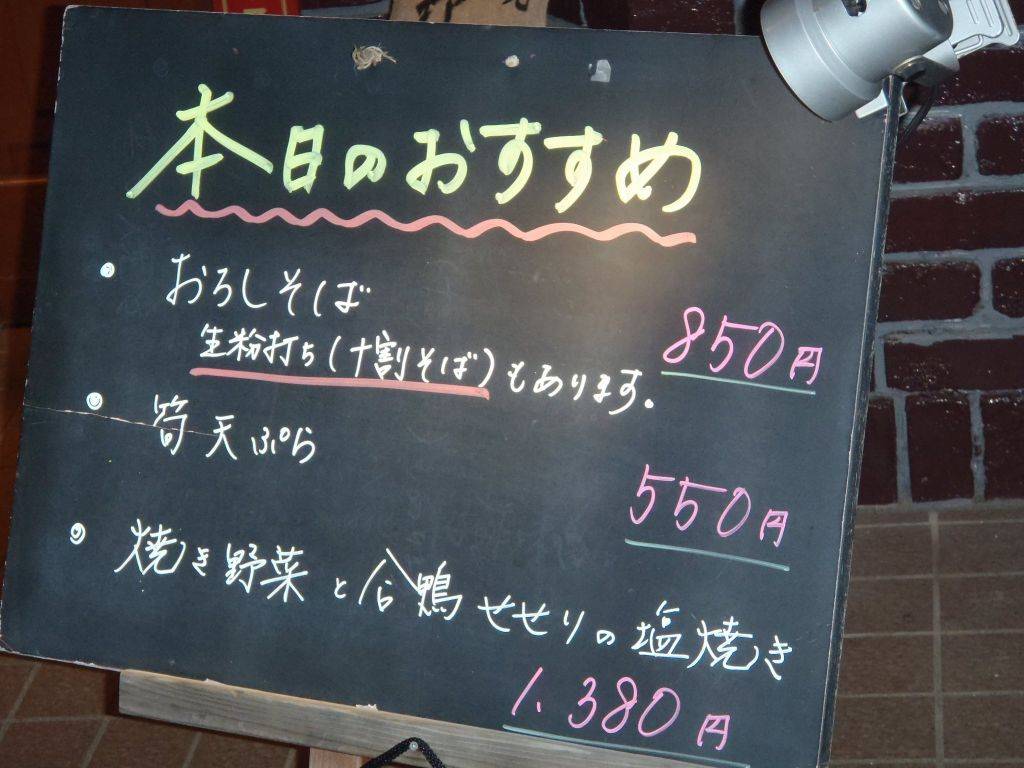 本日のおすすめ
おろしそば
850円
生粉打ち(十割そば)もあります。
筍天ぷら
550円
焼き野菜と合鴨せせりの塩焼き
1.380円